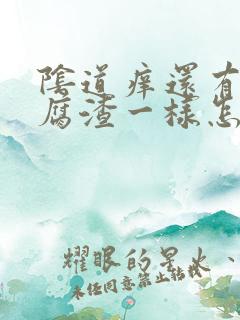 陰道痒還有
腐渣一樣怎
耀眼的星火、
未任同意禁止转载